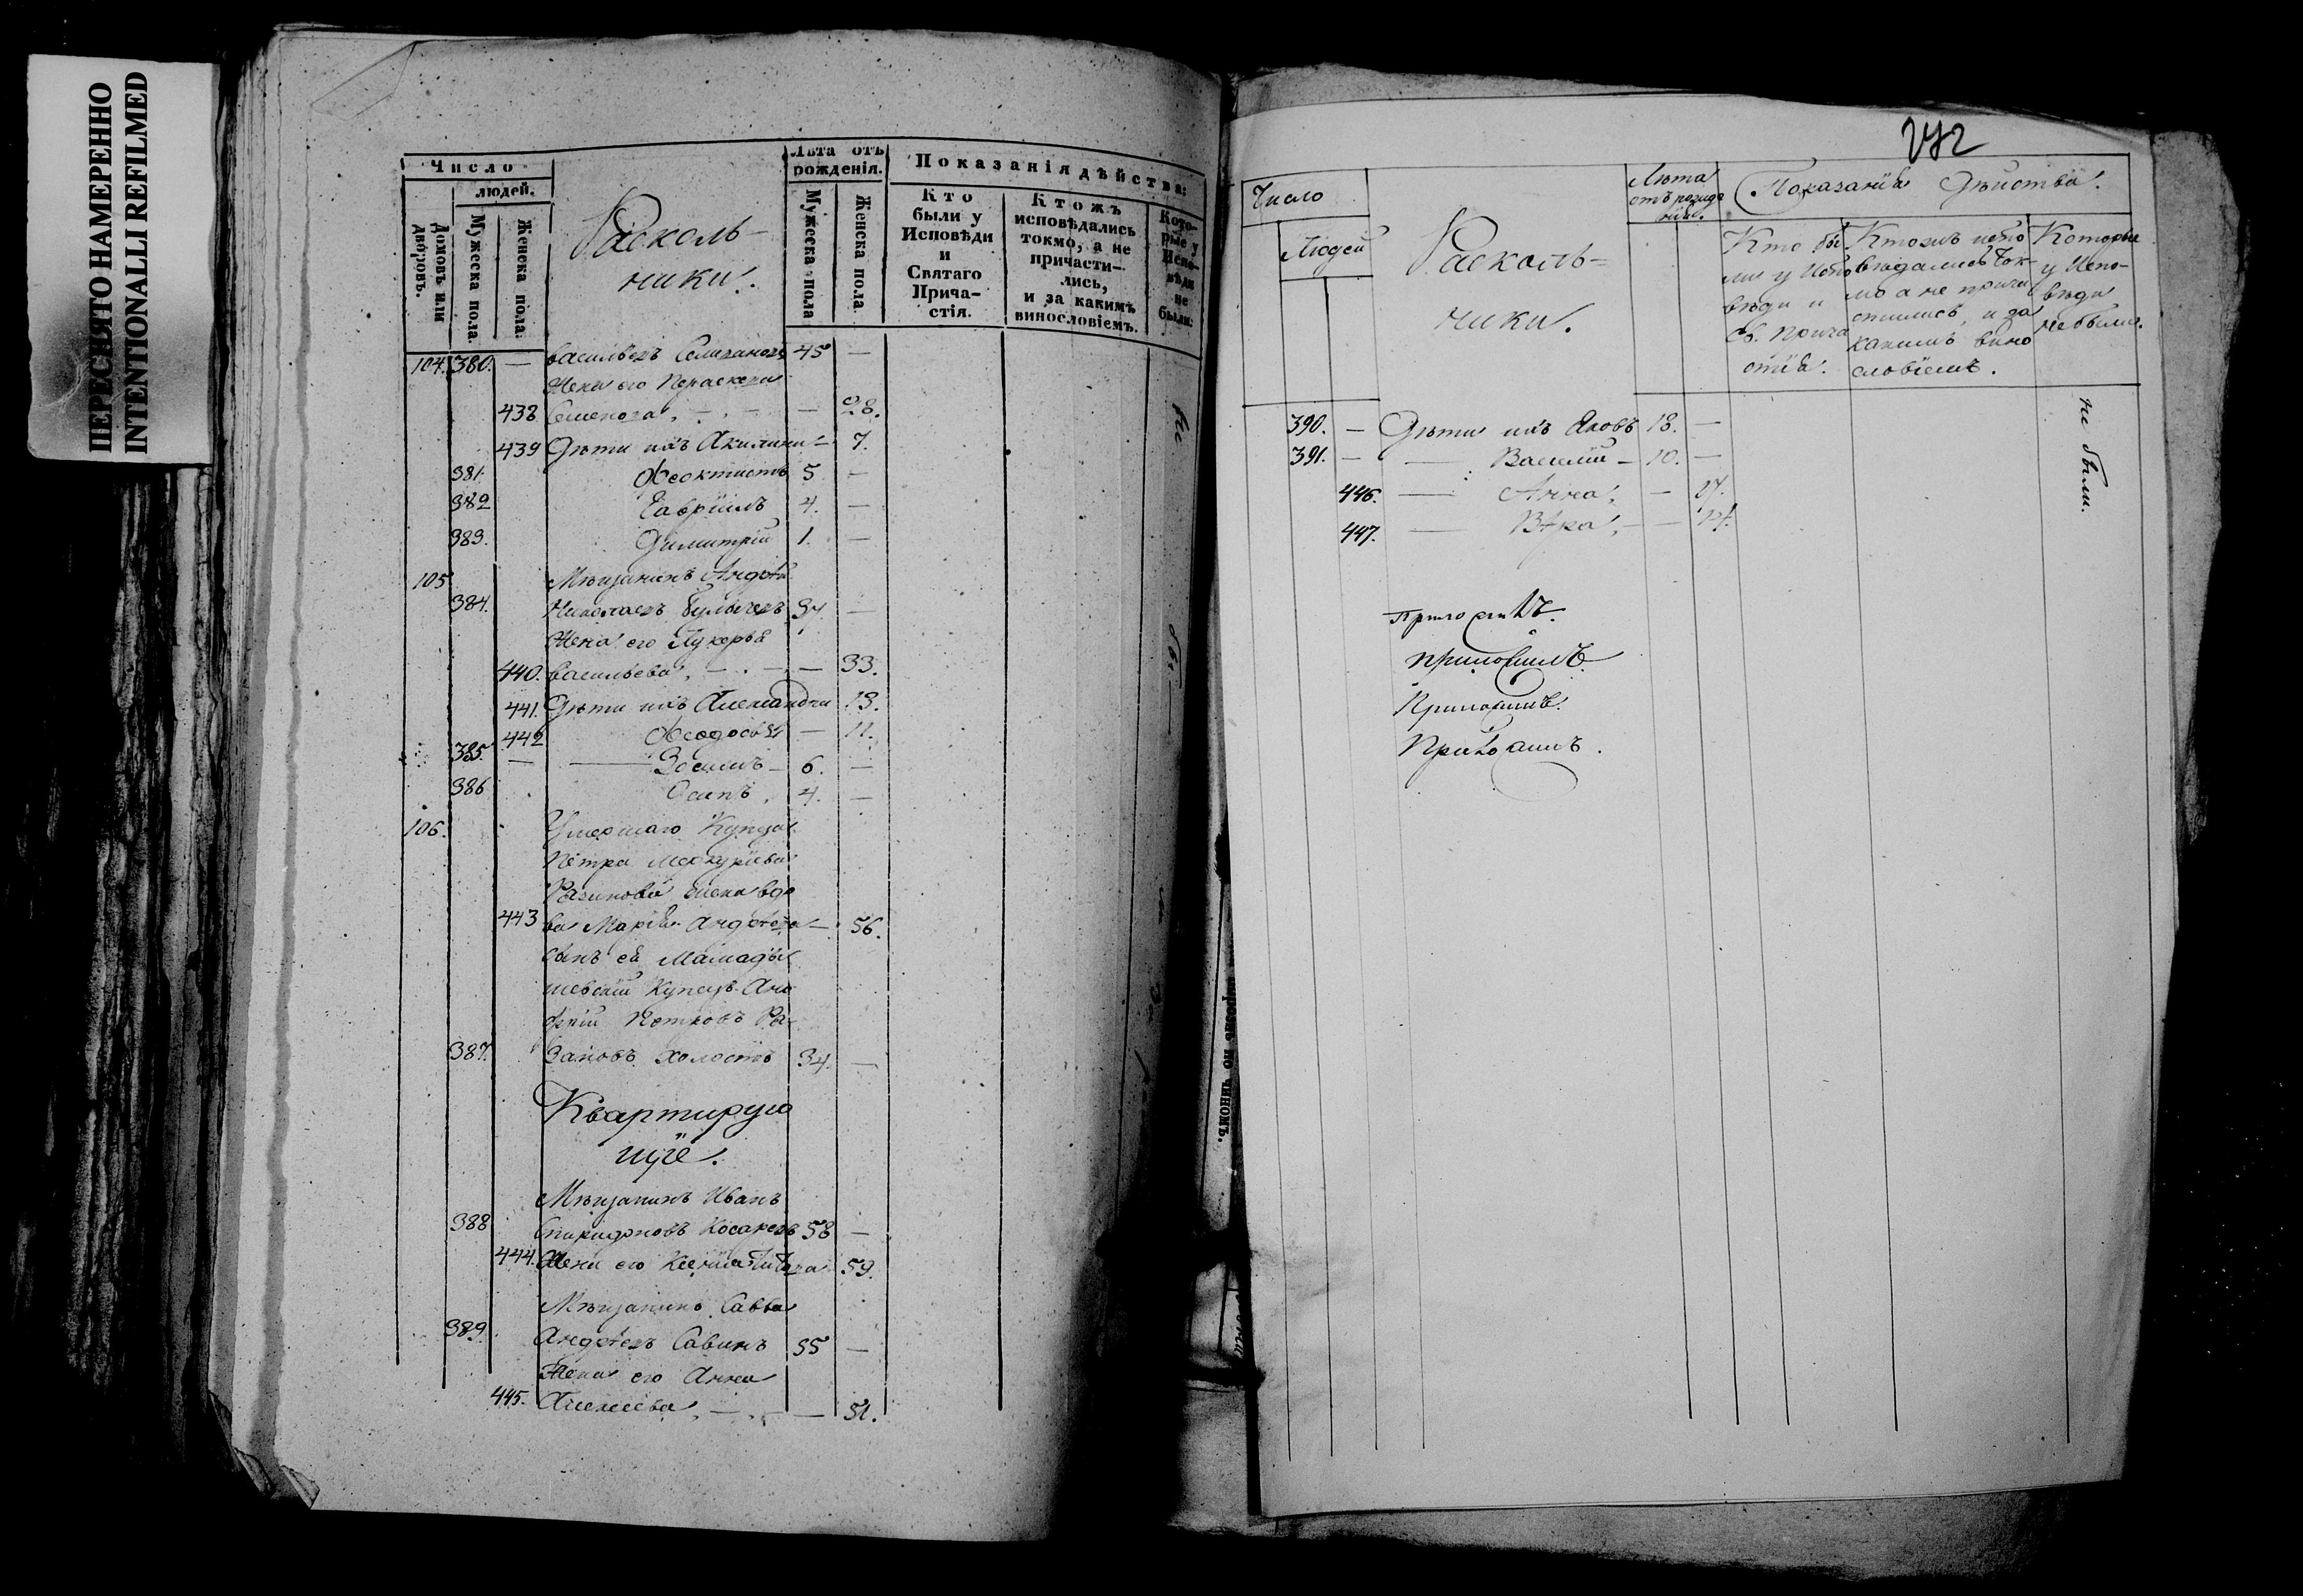 ПЕРЕСНЯТО НАМЕРЕННО
INTENTIONALLI REFILMED
Число
людей.
Домовъ или дворовъ.
Мужеска пола.
Женска пола.
Расколь-
ники.
Лѣта отъ
рожденія.
Мужеска пола
Женска пола
Показанія дѣйства:
Кто
были у
Исповѣди
и
Святаго
Прича-
стія.
Ктожъ
исповѣдались
токмо, а не
причасти-
лись,
и за какимъ
винословіемъ.
Кото-
рые у
Испо-
вѣди
не
были.
104. 380. — Васильевъ Селивановъ 45 —
Жена его Параскева
438 Семенова, — — 28.
439 Дѣти ихъ Акилина — 7.
381. Ѳеоктистъ 5 —
382 Гавріилъ 4. —
383. Димитрій 1. —
105 Мѣщанинъ Андрей
384. Николаевъ 34 —
Жена его Лукерья
440. Васильева, — — 33.
441. Дѣти ихъ Александра 13.
442 Ѳеодосья — 11.
385. — — Зосимъ — 6. —
386 Осипъ, 4. —
106. Умершаго Купца
Петра Меркурьева
жена вдо
443 ва Марія Андреева — 56.
Сынъ ея Мамады
шевскій Купецъ
Петровъ
387. холостъ 34. —
Квартирую
щіе.
Мѣщанинъ Иванъ
388 Спиридоновъ Косаревъ 58 —
444. Жена его Ксенія Титова 59.
Мѣщанинъ Савва
389. Андреевъ Савинъ 55 —
Жена его Анна
445. Алексеева, — — 51.
272
Число
Людей
Расколь-
ники.
Лѣта
отъ рожде
нія.
Показанія дѣйства.
Кто бы
ли у Испо
вѣди и
Св. Прича
стія.
Ктожъ испо
вѣдались ток-
мо а не прича
стились, и за
какимъ вино
словіемъ.
Которые
у Испо-
вѣди
небыли.
390. — Дѣти ихъ Яковъ 18. —
391. — — Василій — 10. —
446. — Анна, — 17.
447. — Вѣра, — — 14.
не были.